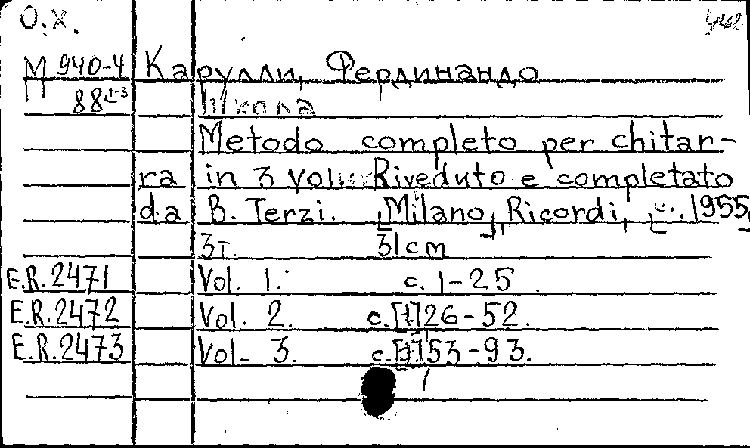 О.Х.
М 940-4 Карулли, Фердинандо
88 1-3 Школа
Metodo completo per chitar-
ra in 3 Volu Riveduto e completato
da B. Terzi. [Milano], Ricordi, 1955
3т. 31cm
E.R.2471 Vol. 1. c. 1-25
E.R.2472 Vol. 2. c.[1]26-52.
E.R.2473 Vol. 3. c.[1]53-93.